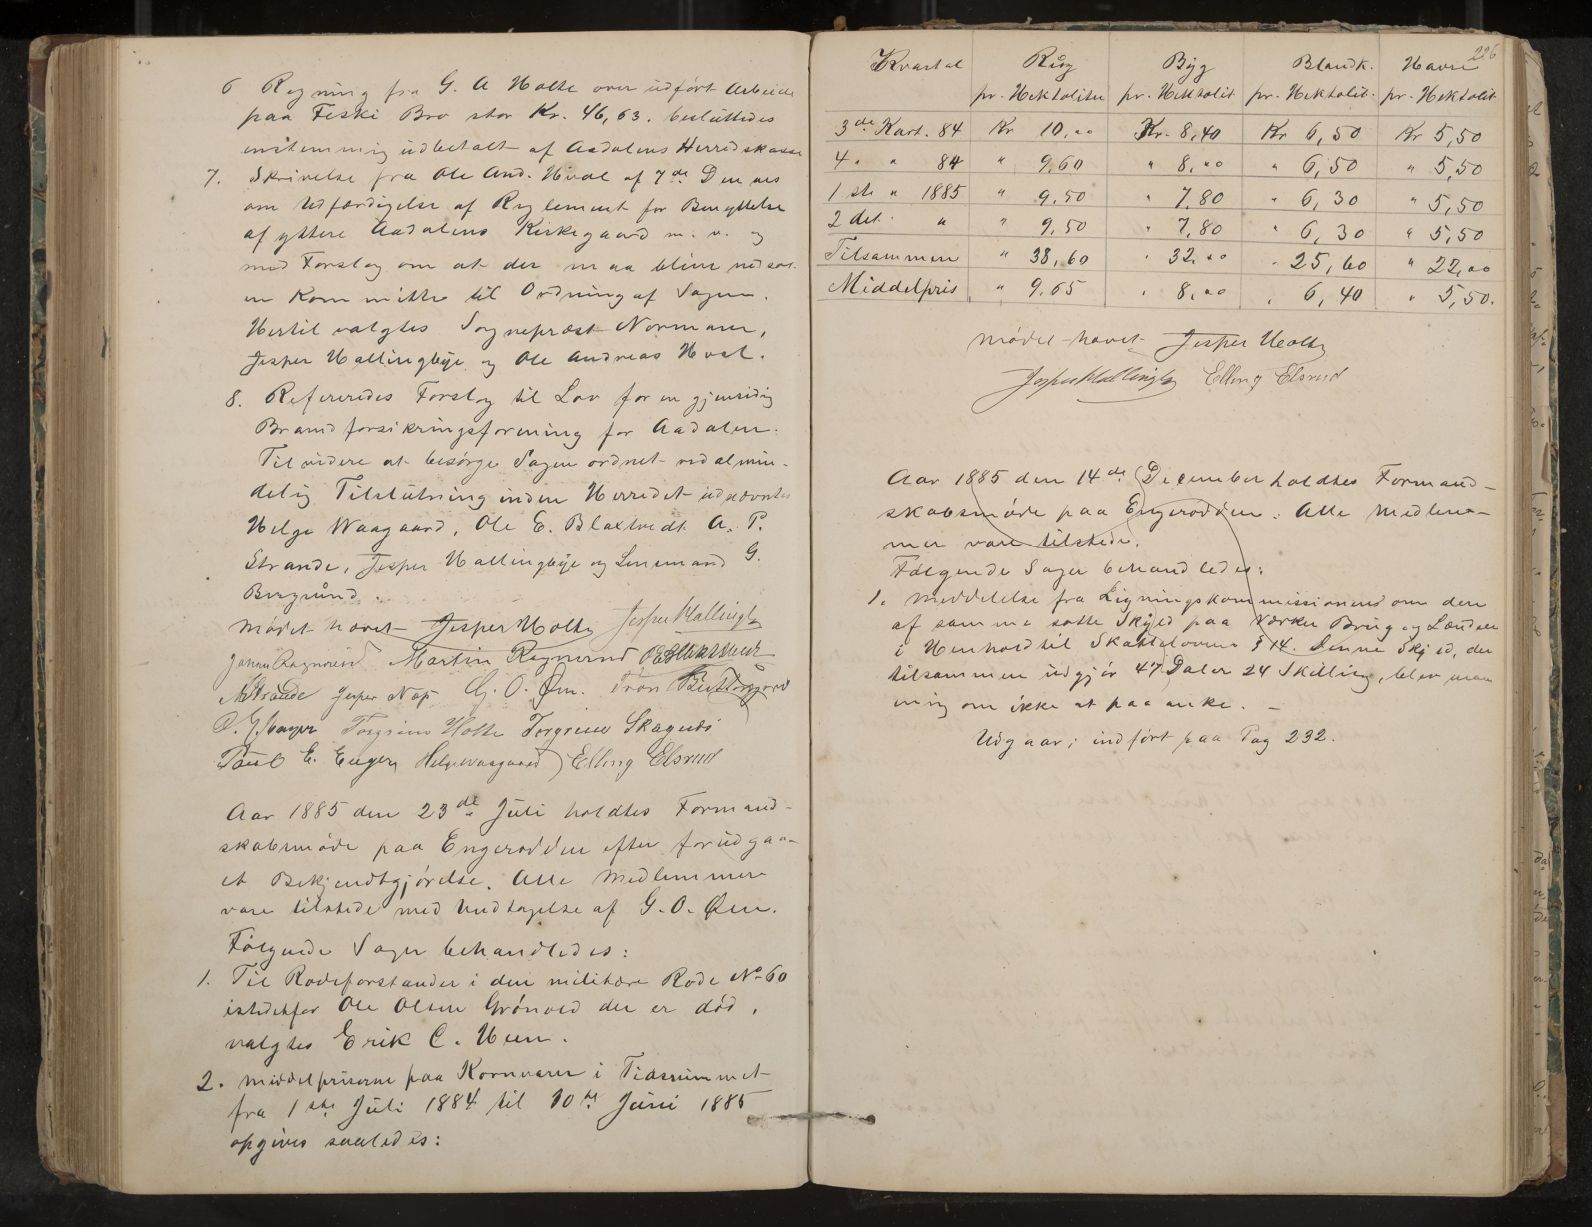 6 Regning fra G. A Holte over udført Arbeide
paa Feski Bro stor Kr. 46,63. besluttedes
enstemmig udbetalt af Aadalens Herredskasse
7. Skrivelse fra Ole And. Hval af 7de Dennes
om Udfærdigelse af Reglement for Benyttelse
af yttere Aadalens Kirkegaard m. v. og
med Forslag om at der maa blive nedsat
en Kommitte til Ordning af Sagen.
Hertil valgtes Sogneprest Normann,
Jesper Hallingbye og Ole Andreas Hval.
8. Refereredes Forslag til Lov for en gjensidig
Brandforsikringsforening for Aadalen.
Til videre at besørge Sagen ordnet ved almin-
delig Tilslutning inden Herredet udnævntes
Helge Waagaard, Ole E. Blaxtvedt A. P.
Strande, Jesper Hallingbye og Lensmand G.
Bergsund.
Mødet hævet Jesper Holte Jesper Hallingby
Johan Ragnrind Martin Ragnrind OEBlakstvedt
AStrande Jesper Næs G. O. Øen. Tron Buttingsrud
Torgrim Holte Torgrim Skagnæs
Poul E. Enger Helge Waagaard Elling Elsrud
Aar 1885 den 23de Juli holdtes Formand-
skabsmøde paa Engerodden efter forudgaa-
et Bekjendtgjørelse. Alle Medlemmer
vare tilstede med Undtagelse af G. O. Øen.
Følgende Sager behandledes:
1. Til Rodeforstander i den militære Rode No 60
istedetfor Ole Olsen Grønvold der er død,
valgtes Erik C. Heen.
2. Middelpriserne paa Kornvarer i Tidsrummet
fra 1ste Juli 1884 til 30te Juni 1885
opgives saaledes:
226
Kvartal Rug Byg Blandk. Havre
pr. Hektoliter pr. Hektolit pr. Hektolit. pr. Hektolit
3de Kart. 84 Kr 10,00 Kr. 8,40 Kr 6,50 Kr 5,50
4 " " 84 " 9,60 " 8,00 " 6,50 " 5,50
1ste " 1885 " 9,50 " 7,80 " 6,30 " 5,50
2det " " 9,50 " 7,80 " 6,30 " 5,50
Tilsammen " 38,60 " 32,00 " 25,60 " 22,00
Middelpris " 9,65 " 8,00 " 6,40 " 5,50.
Mødet hævet Jesper Holte
Jesper Hallingby Elling Elsrud
Aar 1885 den 14de December holdtes Formand-
skabsmøde paa Engerodden. Alle Medlem-
mer vare tilstede.
Følgende Sager behandledes:
1. Meddelelse fra Ligningskommissionens om den
af samme satte Skyld paa Værker Brug og Landeier
i Henhold til Skatteloven § 14. Denne Skyld, der
tilsammen udgjør 47 Daler 24 Skilling, blev man
enig om ikke at paaanke. -
Udgaar; indført paa Pag 232.